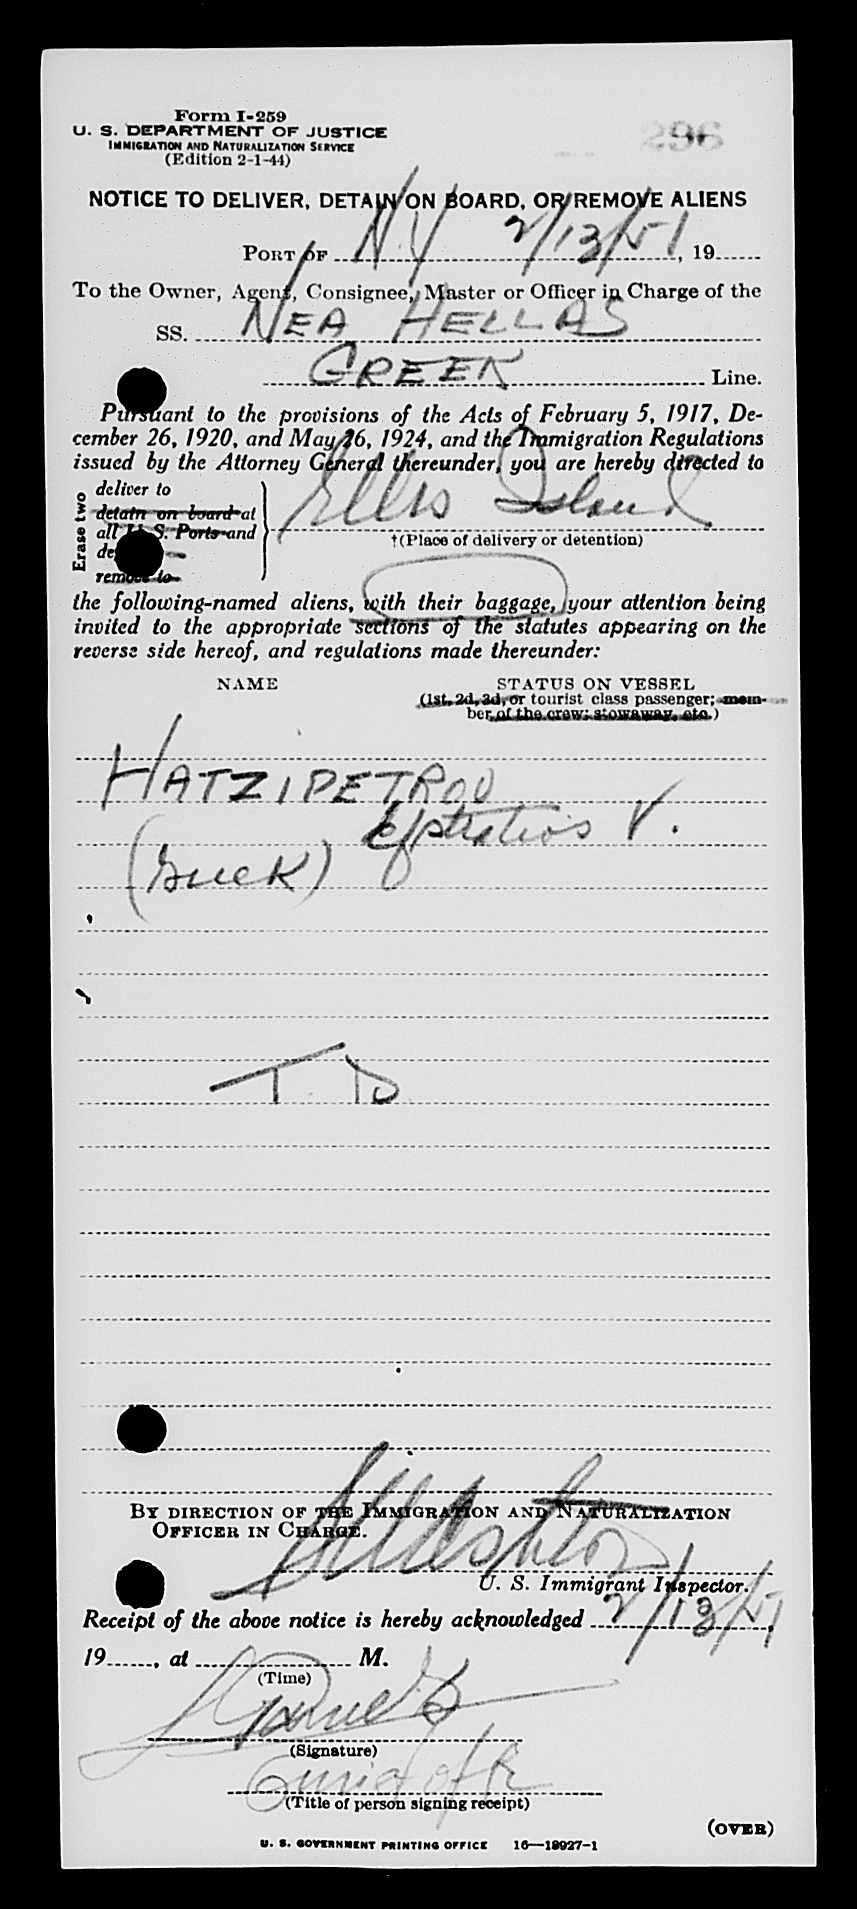 Form I-259
U. S. DEPARTMENT OF JUSTICE
IMMIGRATION AND NATURALIZATION SERVICE
(Edition 2-1-44)
296
NOTICE TO DELIVER, DETAIN ON BOARD, OR REMOVE ALIENS
PORT OF N.Y 2/13/51, 19
To the Owner, Agent, Consignee, Master or Officer in Charge of the
SS. NEA HELLAS
GREEK Line.
Pursuant to the provisions of the Acts of February 5, 1917, De-
cember 26, 1920, and May 26, 1924, and the Immigration Regulations
issued by the Attorney General thereunder, you are hereby directed to
Erase two
deliver to
detain on board at
all U. S. Ports and
remove to
Ellis Island
†(Place of delivery or detention)
the following-named aliens, with their baggage, your attention being
invited to the appropriate sections of the statutes appearing on the
reverse side hereof, and regulations made thereunder:
NAME STATUS ON VESSEL
(1st, 2d, 3d, or tourist class passenger; mem-
ber of the crew; stowaway, etc.)
HATZIPETROU
Efstratios V.
(Greek)
T. D
BY DIRECTION OF THE IMMIGRATION AND NATURALIZATION
OFFICER IN CHARGE.
U. S. Immigrant Inspector.
Receipt of the above notice is hereby acknowledged 2/13/51,
19, at M.
(Time)
(Signature)
(Title of person signing receipt)
(OVER)
U. S. GOVERNMENT PRINTING OFFICE 16—18927-1